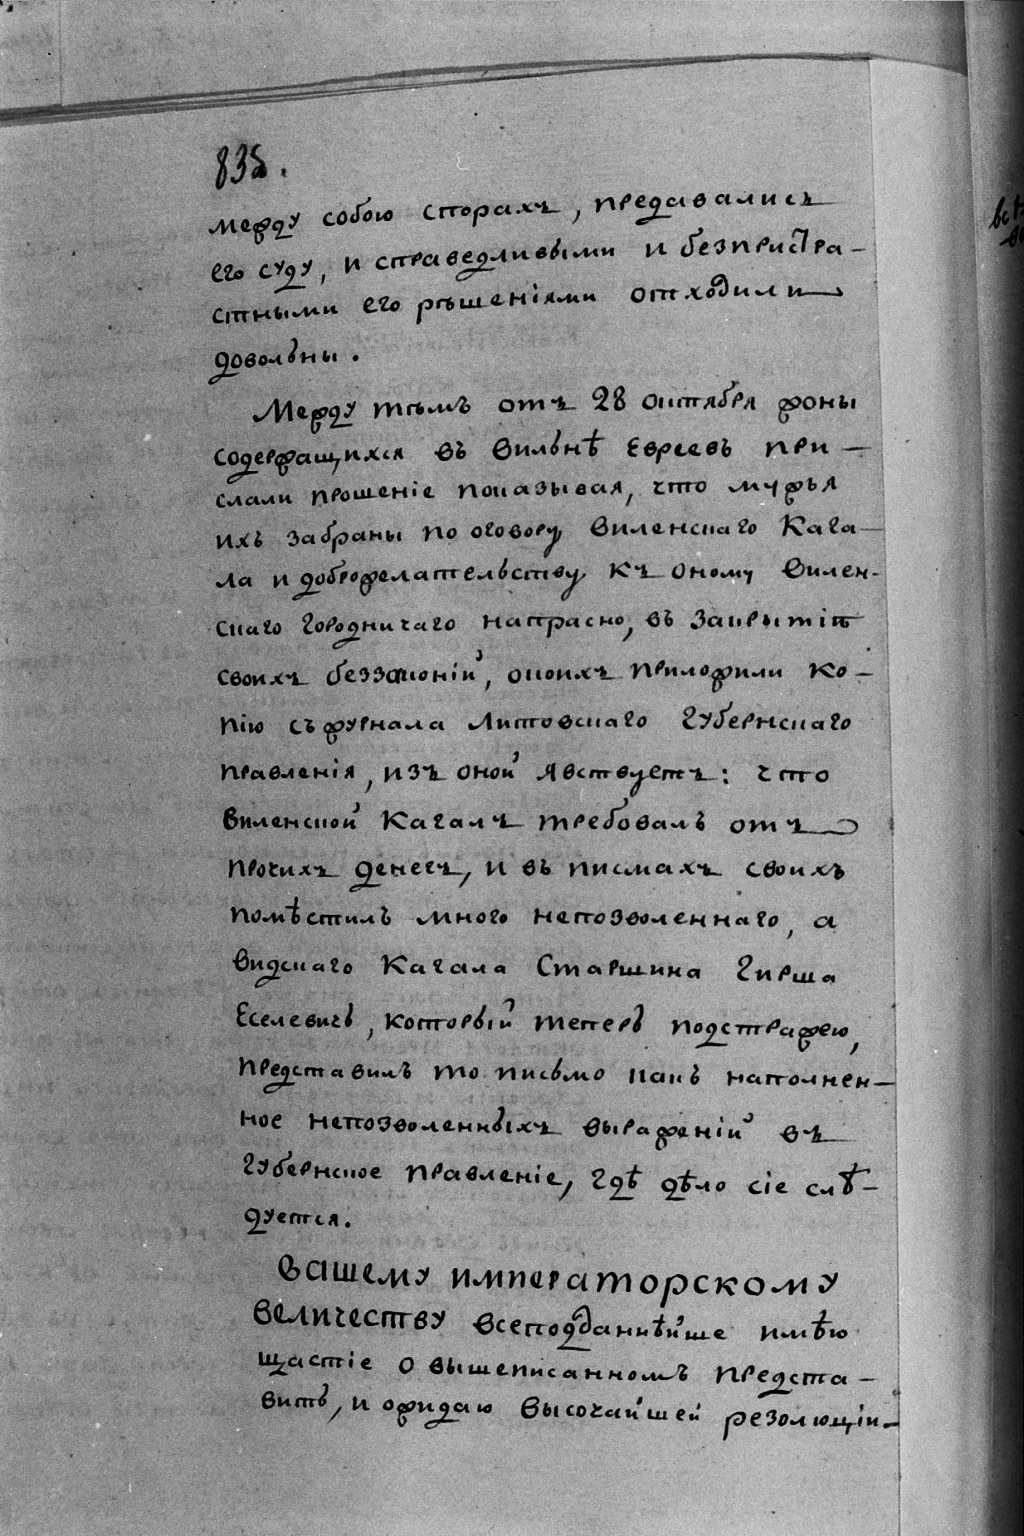 835.
между собою спорахъ, предавались
его суду, и справедливыми и безпристра-
стными его рѣшеніями отходили
довольны.
Между тѣмъ отъ 28 октября жоны
содержащихся въ Вильнѣ Евреевъ при-
слали прошеніе показывая, что мужья
ихъ забраны по оговору Виленскаго Кага-
ла и доброжелательству къ оному Вилен-
скаго Городничаго напрасно, въ закрытіѣ
своихъ беззаконій, окоихъ приложили ко-
пію съ журнала Литовскаго Губернскаго
правленія, изъ оной явствуетъ: что
Виленской Кагалъ требовалъ отъ
прочихъ денегъ, и въ писмахъ своихъ
помѣстилъ много непозволеннаго, а
Видскаго Кагала Старшина Гирша
Еселевичь, который теперь подстражею,
представилъ то письмо какъ наполнен-
ное непозволенныхъ выраженій въ
Губернское правленіе, гдѣ дѣло сіе слѣ-
дуется.
Вашему императорскому
величеству всеподданнѣйше имѣю
щастіе о вышеписанномъ предста-
вить, и ожидаю высочайшей резолюціи.